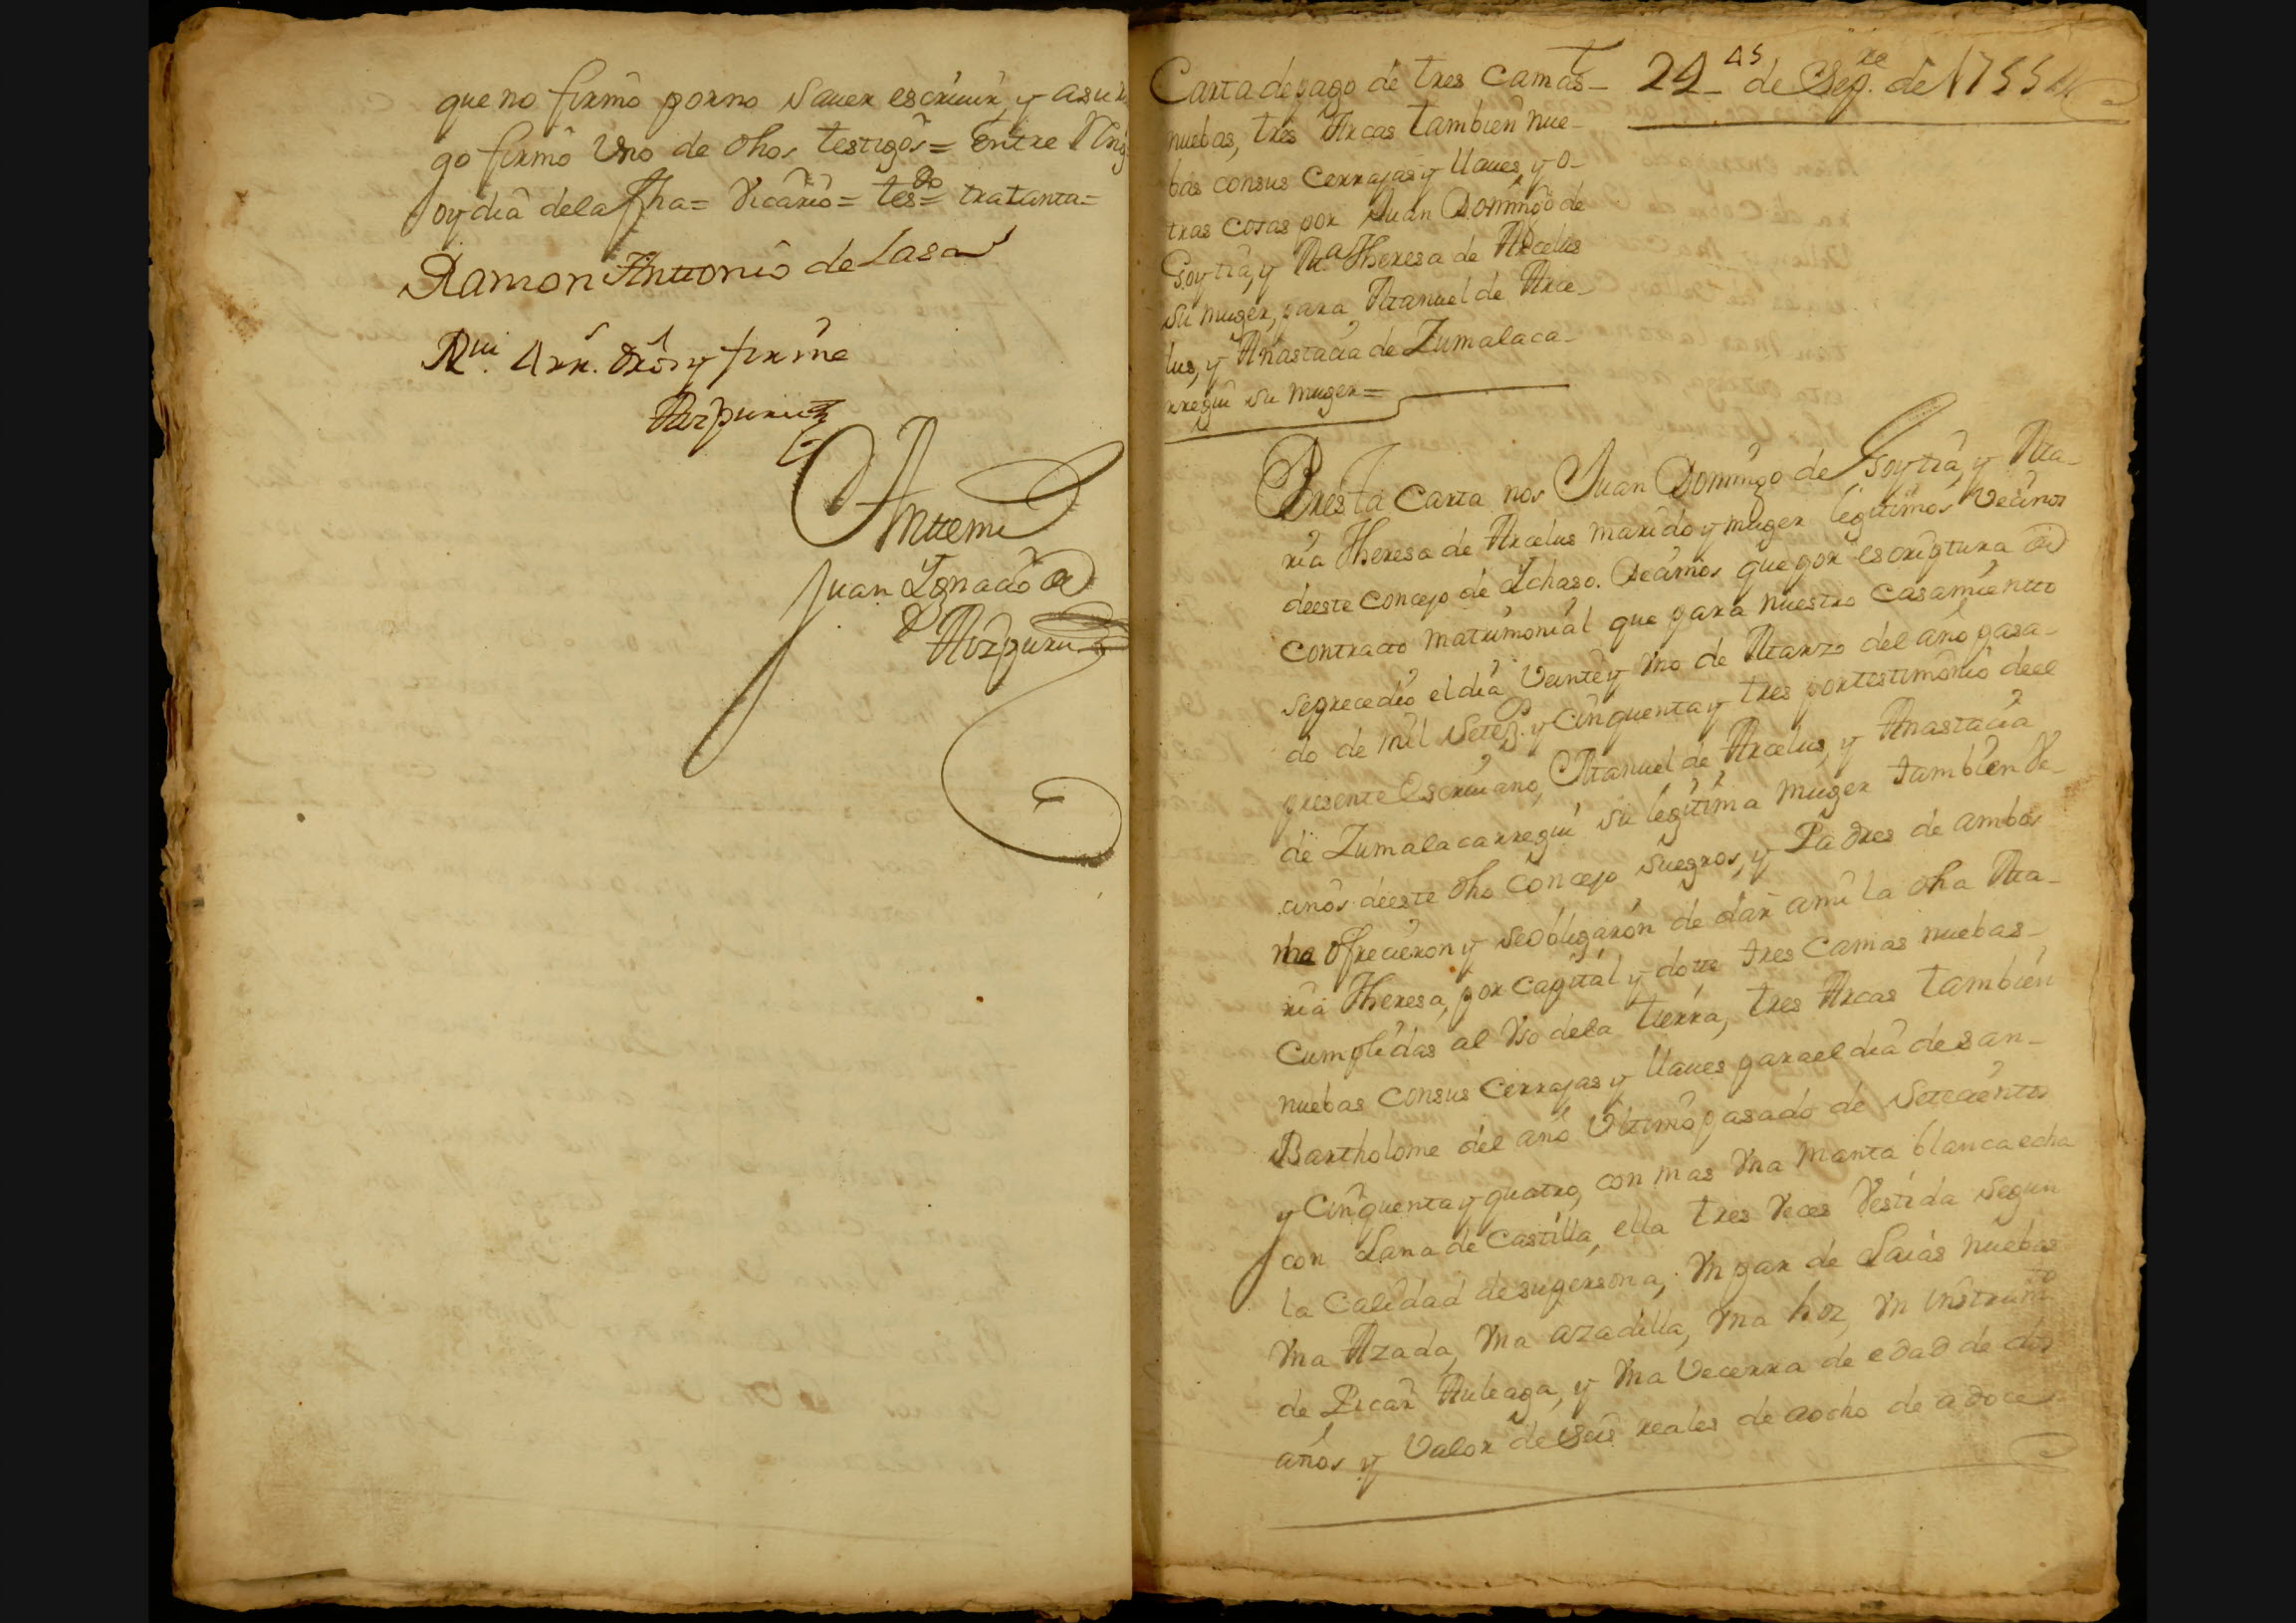 que no firmó por no Saver escriuir, y asu r
go firmó Vno de dhos testigos = entre Rng
oy dia dela fha = Vicario = tes do = tratanta =
Ramon Anttonio de Lasa
Rui Arr. dros y firmé
Aizpuru
Anttemi
Juan Ygnacio de
Aizpuru
Carta de pago de tres Camas
nuebas, tres Arcas tambien nue-
bas consus Cerrajas y llaues, y o-
tras cosas por Juan Domingo de
Goytia, y Ma Theresa de Arcelus
su muger, para Manuel de Arce-
lus, y Anastacia de Zumalaca-
rregui su muger =
24 de Sepre de 1755
En esta Carta nos Juan Domingo de Goytia, y Ma-
ria Theresa de Arcelus marido y muger legitimos Vecinos
deeste concejo de Ychaso. Decimos que por escriptura de
contracto matrimonial que para nuestro Casamientto
seprecedio el dia Veinte y Vno de Marzo del año pasa-
do de mil Setez. y Cinquenta y tres por testimonio deel
presente Escriuano, Manuel de Arcelus, y Anastacia
de Zumalacarregui su legitima muger tambien Ve-
cinos deeste dho Concejo suegros, y Padres de ambos
ofrecieron y seobligaron de dar ami la dha Ma-
ria Theresa, por capital y dotte tres Camas nuebas
Cumplidas al Vso dela tierra, tres Arcas tambien
nuebas consus Cerrajas y llaues parael dia de san
Bartholome del año Vltimo pasado de Setecientos
y Cinquenta y quatro, con mas Vna manta blanca echa
con Lana de Castilla, ella tres Veces Vestida segun
la Calidad desupersona, Vn par de Laias nuebas
Vna Azada, Vna azadilla, Vna hoz, Vn Instrumto
de Picar Auleaga, y Vna Vecerra de edad de dos
años y Valor de Seis reales de aocho de adoce